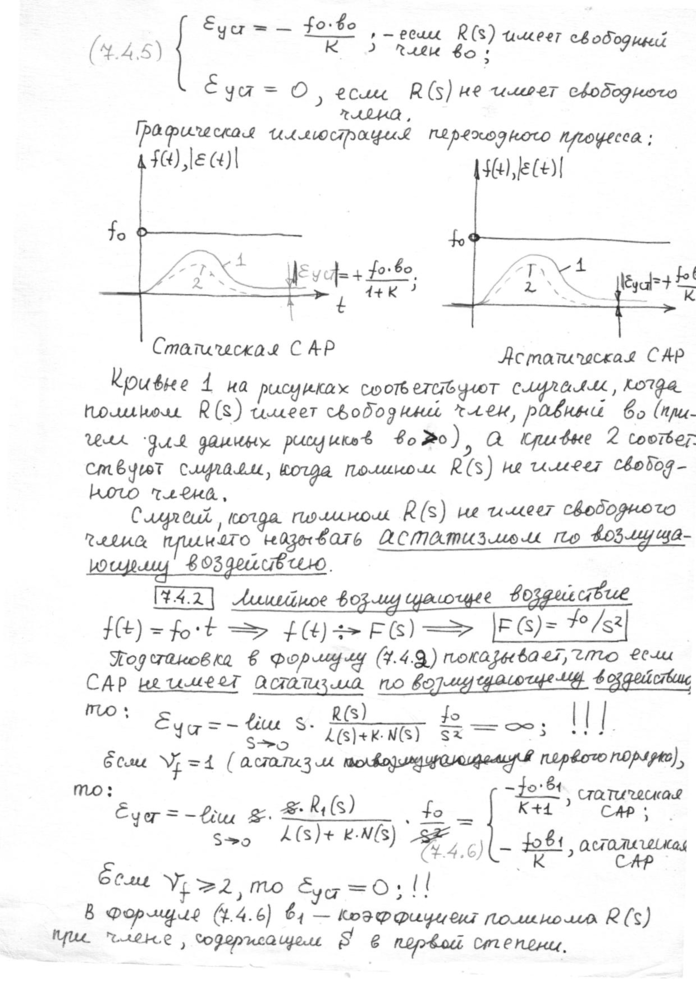 (7.4.5) { εуст = - f0·b0/K ; - если R(s) имеет свободный
член b0;
εуст = 0, если R(s) не имеет свободного
члена.
Графическая иллюстрация переходного процесса:
f(t), |ε(t)|
f(t), |ε(t)|
f0
f0
1
2
|εуст| = + f0·b0/1+K ;
t
1
2
|εуст| = + f0 b/K
Статическая САР
Астатическая САР
Кривые 1 на рисунках соответствуют случаям, когда
полином R(s) имеет свободный член, равный b0 (при-
чем для данных рисунков b0>0), а кривые 2 соответ-
ствуют случаям, когда полином R(s) не имеет свобод-
ного члена.
Случай, когда полином R(s) не имеет свободного
члена принято называть астатизмом по возмуща-
ющему воздействию.
7.4.2 Линейное возмущающее воздействие
f(t) = f0·t ⟹ f(t) ÷ F(s) ⟹ F(s) = f0/s²
Подстановка в формулу (7.4.2) показывает, что если
САР не имеет астатизма по возмущающему воздействию,
то: εуст = - lim s→0 s · R(s)/L(s)+K·N(s) f0/s² = ∞; !!!
Если νf = 1 (астатизм первого порядка),
то:
εуст = - lim s→0 s · s·R1(s)/L(s)+K·N(s) · f0/s² = { -f0·b1/K+1, статическая САР;
(7.4.6) - f0b1/K, астатическая САР
Если νf ≥ 2, то εуст = 0; !!
В формуле (7.4.6) b1 – коэффициент полинома R(s)
при члене, содержащем S в первой степени.